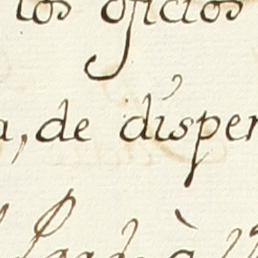 los oficios
a, de disper
à